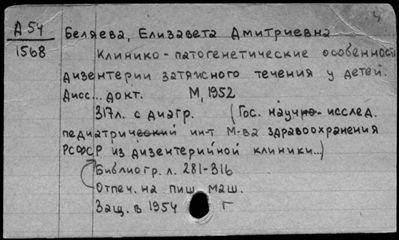 А 54
1568
Беляева, Елизавета Дмитриевна
Клинико-патогенетические особенност
дизентерии затяжного течения у детей.
Дисс... докт. М, 1952
317л. с диагр. (Гос. научно-исслед.
педиатрический ин-т М-ва здравоохранения
РСФСР из дизентерийной клиники...)
Библиогр. л. 281-316
Отпеч. на пиш маш.
Защ. в 1954 г